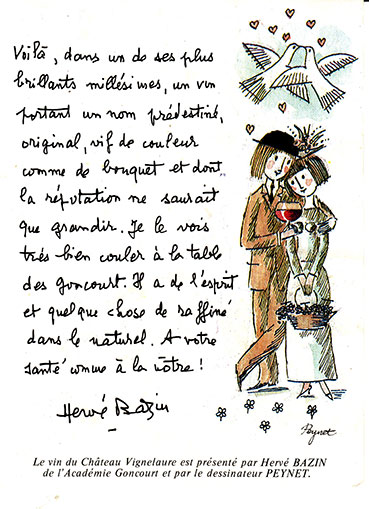 Voilà, dans un de ses plus
brillants millésimes, un vin
portant un nom prédestiné,
original, vif de couleur
comme de bouquet et dont
la réputation ne saurait
que grandir. Je le vois
très bien couler à la table
des Goncourt. Il a de l'esprit
et quelque chose de raffiné
dans le naturel. A votre
santé comme à la nôtre !
Hervé Bazin
Peynet
Le vin du Château Vignelaure est présenté par Hervé BAZIN
de l'Académie Goncourt et par le dessinateur PEYNET.